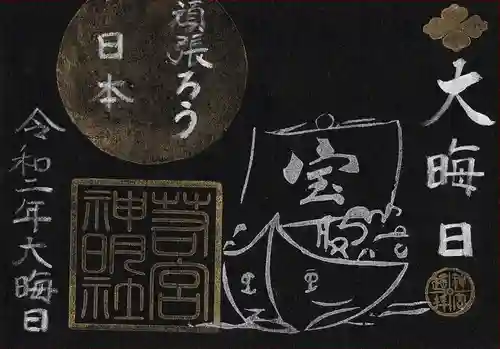 大晦日
頑張ろう
日本
宝
令和二年大晦日
芸宮
神明社